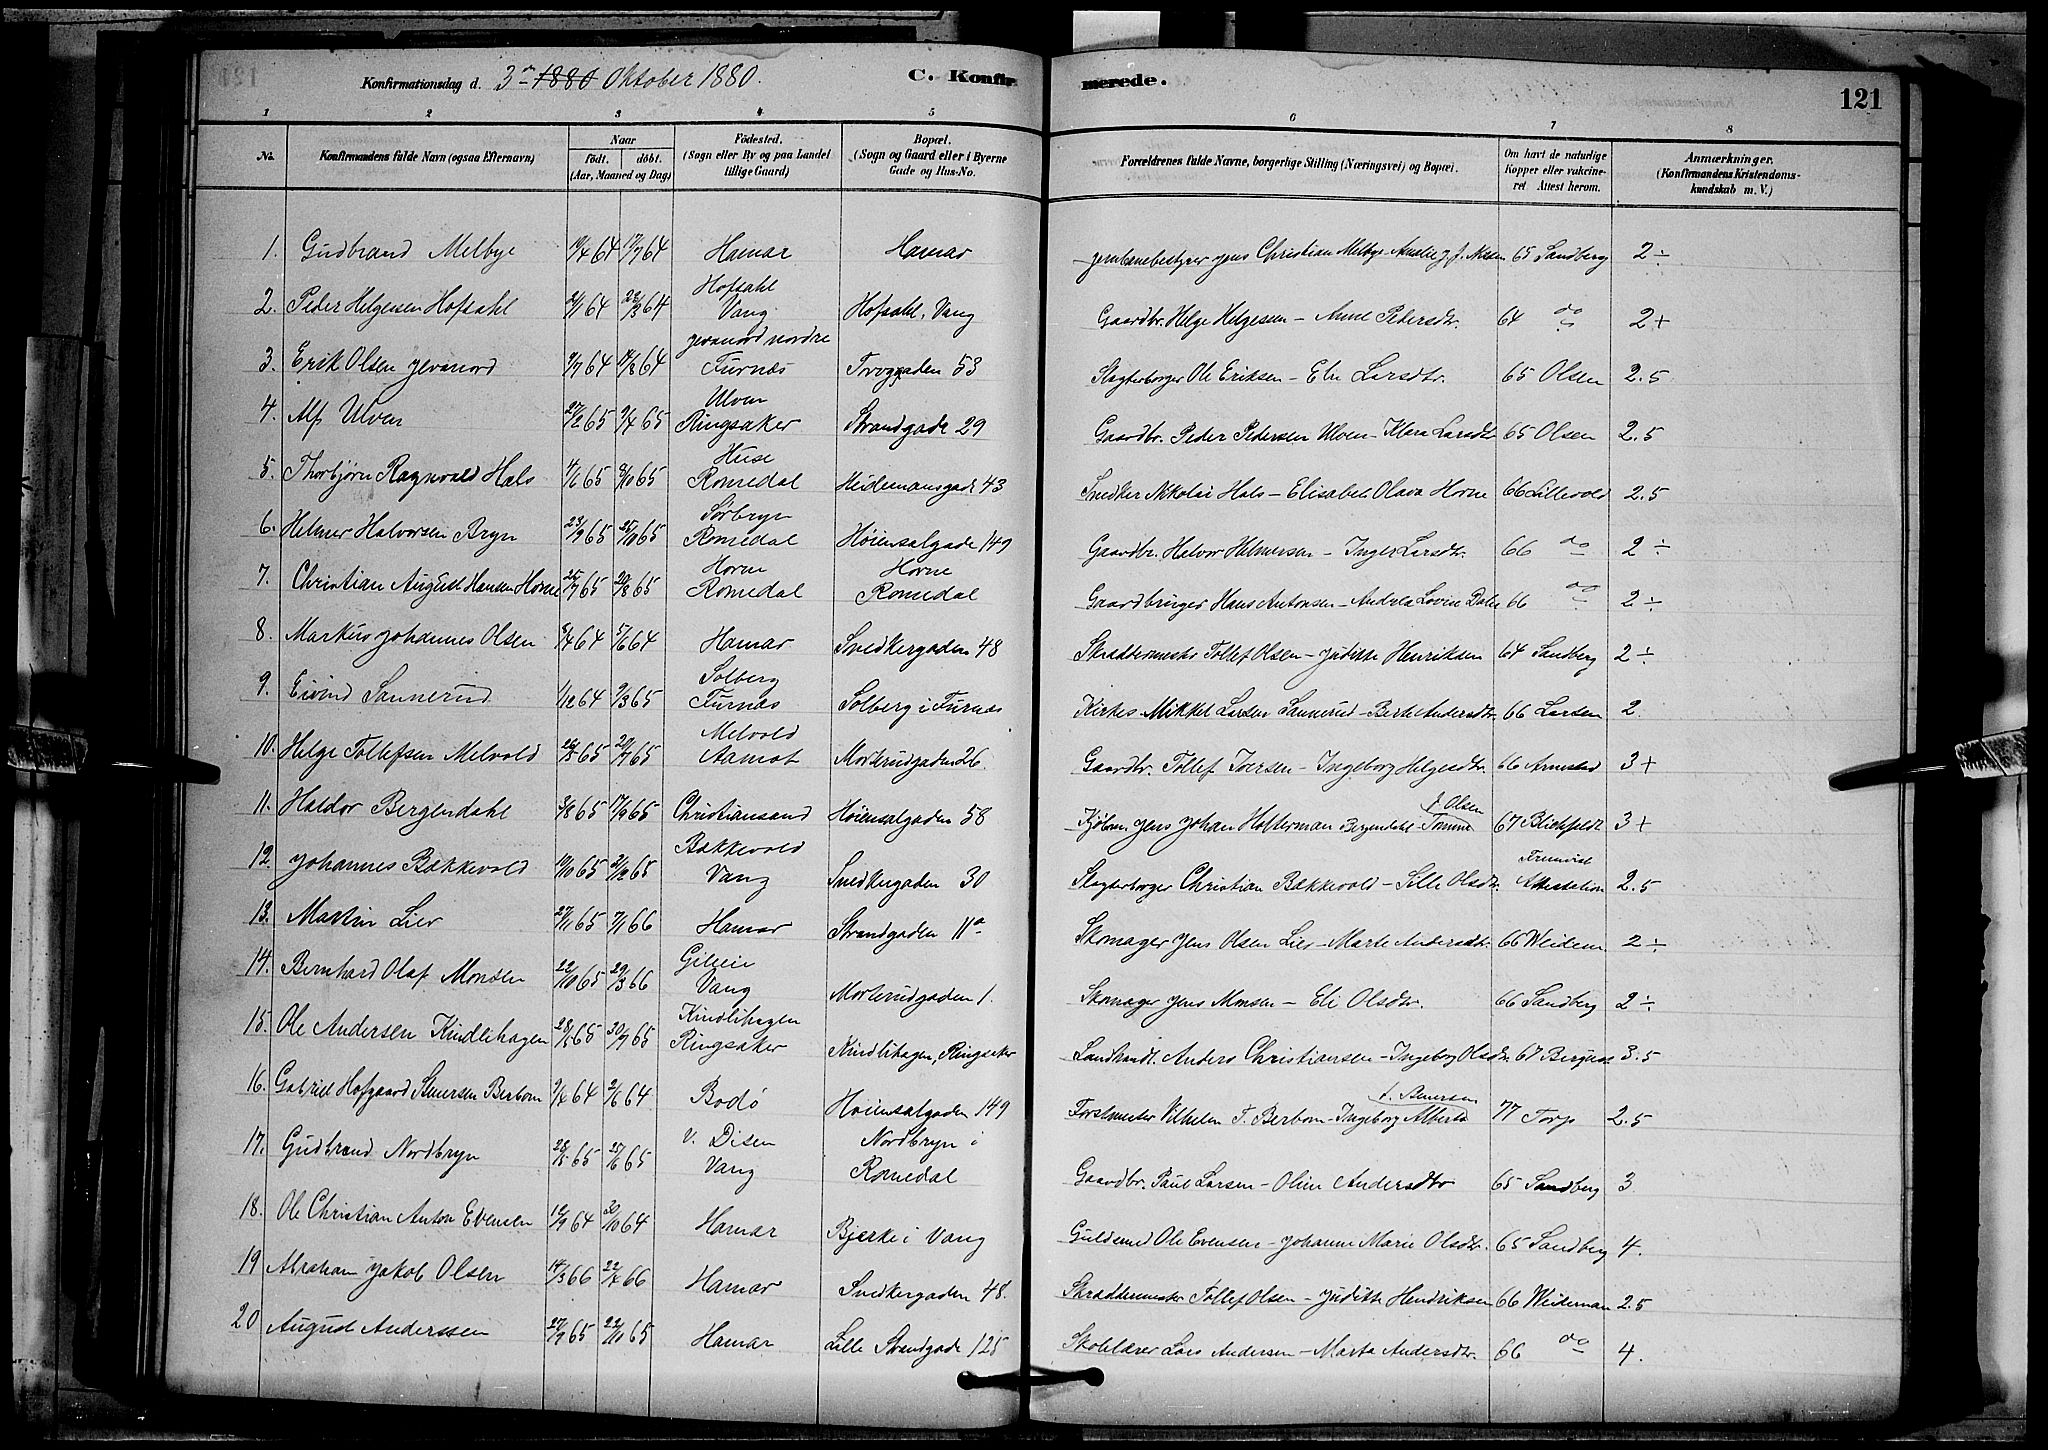 Konfirmationsdag d. 3die 1880 Oktober 1880.
C. Konfirmerede.
121
1 2 3 4 5 6 7 8
No. Konfirmandens fulde Navn (ogsaa Efternavn) Naar født. døbt. (Aar, Maaned og Dag) Fødested. (Sogn eller By og paa Landet tillige Gaard) Bopæl. (Sogn og Gaard eller i Byerne Gade og Hus-No. Forældrenes fulde Navne, borgerlige Stilling (Næringsvei) og Bopæl. Om havt de naturlige Kopper eller vakcineret Attest herom. Anmærkninger. (Konfirmandens Kristendomskundskab m. V.)
1. Gudbrand Melbye 19/4 64 17/7 64 Hamar Hamar Jernbanebestyrer Jens Christian Melbye Amalie J. f. Nilsen 65 Sandberg 2÷
2. Peder Helgesen Hofsahl 21/1 64 28/3 64 Hofsahl Vang Hofsahl, Vang Gaardbr. Helge Helgesen - Anne Pedersdtr. 64 do 2+
3. Erik Olsen Jevanord 9/7 64 14/8 64 Jevanord nordre Furnæs Torvgaden 53 Slagterborger Ole Eriksen - Eli Larsdtr. 65 Olsen 2.5
4. Alf Ulven 27/2 65 9/4 65 Ulven Ringsaker Strandgade 29 Gaardbr. Peder Pedersen Ulven - Klara Larsdtr 65 Olsen 2.5
5. Thorbjørn Ragnvald Hals 4/6 65 8/10 65 Huse Romedal Heidemansgade 43 Snedker Nikolai Hals - Elisabet Olava Horne 66 Lillevold 2.5
6. Helmer Halvorsen Bryn 23/9 65 25/10 65 Sørbryn Romedal Høiensalgade 149 Gaardbr. Halvor Helmersen - Inger Larsdtr. 66 do 2÷
7. Christian August Hansen Horne 25/7 65 20/8 65 Horne Romedal Horne Romedal Gaardbruger Hans Antonsen - Andrea Lovise Dahl 66 do 2÷
8. Markus Johannes Olsen 8/4 64 5/6 64 Hamar Snedkergaden 48 Skræddermester Tollef Olsen - Juditte Henriksen 64 Sandberg 2÷
9. Eivind Sannerud 1/12 64 9/3 65 Solberg Furnæs Solberg i Furnæs Kirkes. Mikkel Larsen Sannerud - Berte Andersdtr. 66 Larsen 2.
10. Helge Tollefsen Melvold 26/5 65 20/7 65 Melvold Aamot Morterudgaden 26. Gaardbr. Tollef Iversen - Ingeborg Helgesdtr. 66 Arnesed 3+
11. Haldor Bergendahl 3/8 65 17/9 65 Christiansand Høiensalgaden 58 Kjøbm. Jens Johan Holterman Bergendahl - Tomine f. Olsen 67 Blichfeldt 3+
12. Johannes Bækkevold 19/10 65 31/12 65 Bækkevold Vang Snedkergaden 30 Slagterborger Christian Bækkevold - Sille Olsdtr. Fremvist Attestation 2.5
13. Martin Lier 27/11 65 7/1 66 Hamar Strandgaden 11a Skomager Jens Olsen Lier - Marte Andersdtr. 66 Weideman 2÷
14. Bernhard Olaf Monsen 22/10 65 29/3 66 Vang Morterudgaden 1. Skomager Jens Monsen - Eli Olsdtr. 66 Sandberg 2÷
15. Ole Andersen Kindlihagen 28/5 65 30/7 65 Kindlihagen Ringsaker Kindlihagen, Ringsaker Landhandl. Anders Christiansen - Ingeborg Olsdtr. 67 3.5
16. Gabriel Hofgaard Steversen Berbom 9/4 64 2/6 64 Bodø Høiensalgaden 149 Forstmester Vilhelm T. Berbom - Ingeborg Alberta 77 Torp 2.5
17. Gudbrand Nordbryn 28/5 65 25/6 65 v. Disen Vang Nordbryn i Romedal Gaardbr. Paul Larsen - Oline Andersdtr 65 Sandberg 3
18. Ole Christian Anton Evensen 12/9 64 30/10 64 Hamar Bjerke i Vang Guldsmed Ole Evensen - Johanne Marie Olsdtr. 65 Sandberg 4.
19 Abraham Jakob Olsen 14/3 66 22/4 66 Hamar Snedkergaden 48. Skræddermester Tollef Olsen - Juditte Hendriksen 66 Weideman 2.5
20 August Anderssen 27/9 65 22/10 65 Hamar Lille Strandgade 125 Skolelærer Lars Andersen - Marta Andersdtr. 66 do 4.